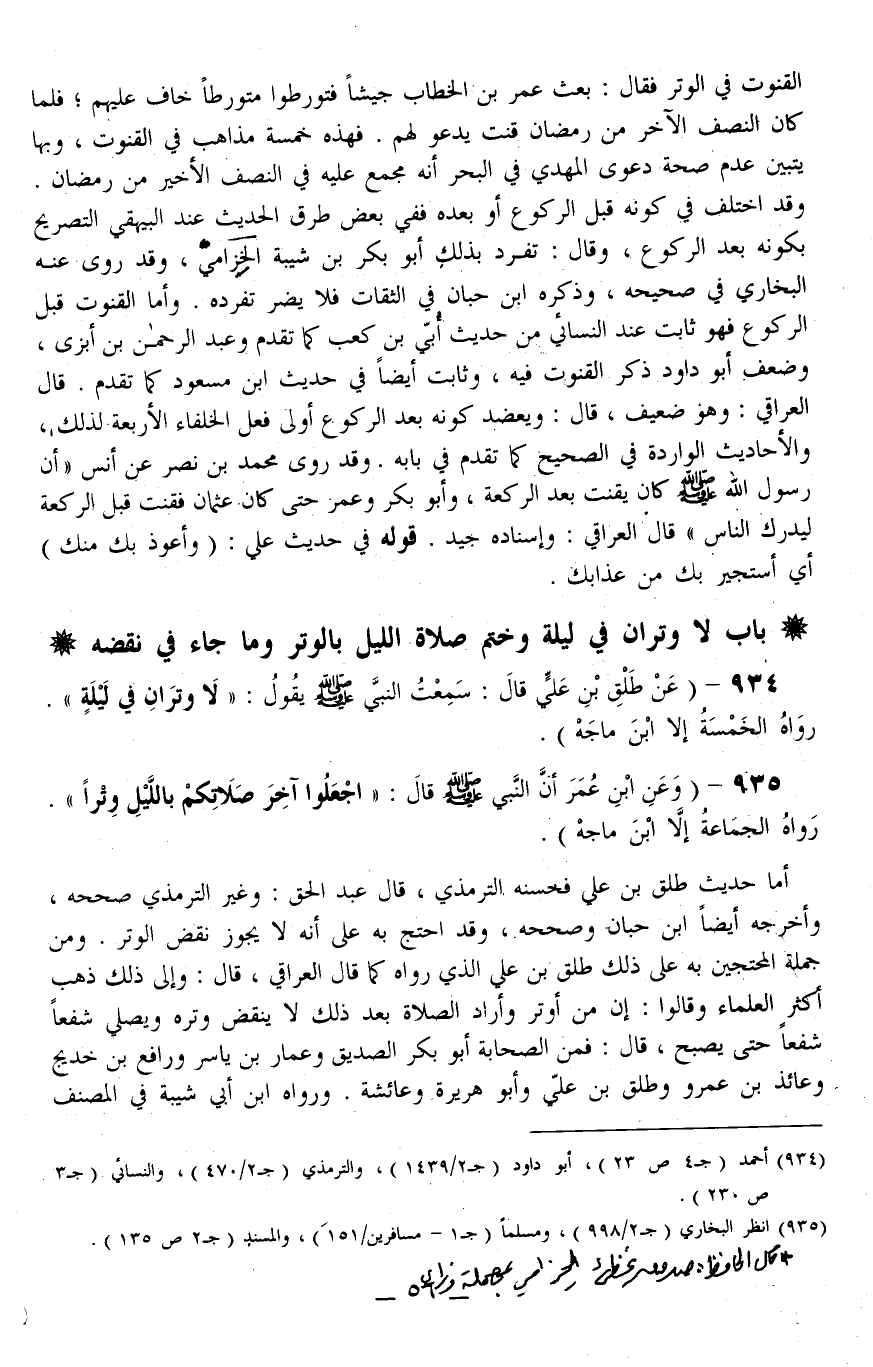 القنوت في الوتر فقال : بعث عمر بن الخطاب جيشاً فتورطوا متورطاً خاف عليهم ؛ فلما
كان النصف الآخر من رمضان قنت يدعو لهم . فهذه خمسة مذاهب في القنوت ، وبها
يتبين عدم صحة دعوى المهدي في البحر أنه مجمع عليه في النصف الأخير من رمضان .
وقد اختلف في كونه قبل الركوع أو بعده ففي بعض طرق الحديث عند البيهقي التصريح
بكونه بعد الركوع ، وقال : تفرد بذلك أبو بكر بن شيبة الحِزَامي* ، وقد روى عنه
البخاري في صحيحه ، وذكره ابن حبان في الثقات فلا يضر تفرده . وأما القنوت قبل
الركوع فهو ثابت عند النسائي من حديث أُبيّ بن كعب كما تقدم وعبد الرحمٰن بن أبزى ،
وضعف أبو داود ذكر القنوت فيه ، وثابت أيضاً في حديث ابن مسعود كما تقدم . قال
العراقي : وهو ضعيف ، قال : ويعضد كونه بعد الركوع أولى فعل الخلفاء الأربعة لذلك ،
والأحاديث الواردة في الصحيح كما تقدم في بابه . وقد روى محمد بن نصر عن أنس « أن
رسول الله ﷺ كان يقنت بعد الركعة ، وأبو بكر وعمر حتى كان عثمان فقنت قبل الركعة
ليدرك الناس » قال العراقي : وإسناده جيد . قوله في حديث علي : ( وأعوذ بك منك )
أي أستجير بك من عذابك .
باب لا وتران في ليلة وختم صلاة الليل بالوتر وما جاء في نقضه
٩٣٤ – ( عَنْ طَلْقِ بْنِ عَليٍّ قالَ : سَمِعْتُ النبيَّ ﷺ يقُولُ : « لَا وِترَانِ في لَيْلَةٍ » .
روَاهُ الخَمْسَةُ إلا ابْنَ ماجَهْ ) .
٩٣٥ – ( وَعَنِ ابْنِ عُمَرَ أنَّ النَّبي ﷺ قالَ : « اجْعَلُوا آخِرَ صَلَاتِكمْ باللَّيْلِ وِتْراً » .
رَواهُ الجمَاعةُ إلَّا ابْنَ ماجهْ ) .
أما حديث طلق بن علي فحسنه الترمذي ، قال عبد الحق : وغير الترمذي صححه ،
وأخرجه أيضاً ابن حبان وصححه ، وقد احتج به على أنه لا يجوز نقض الوتر . ومن
جملة المحتجين به على ذلك طلق بن علي الذي رواه كما قال العراقي ، قال : وإلى ذلك ذهب
أكثر العلماء وقالوا : إن من أوتر وأراد الصلاة بعد ذلك لا ينقض وتره ويصلي شفعاً
شفعاً حتى يصبح ، قال : فمن الصحابة أبو بكر الصديق وعمار بن ياسر ورافع بن خديج
وعائذ بن عمرو وطلق بن عليّ وأبو هريرة وعائشة . ورواه ابن أبي شيبة في المصنف
(٩٣٤) أحمد ( جـ٤ ص ٢٣ ) ، أبو داود ( جـ١٤٣٩/٢ ) ، والترمذي ( جـ٤٧٠/٢ ) ، والنسائي ( جـ٣
ص ٢٣٠ ) .
(٩٣٥) انظر البخاري ( جـ٩٩٨/٢ ) ، ومسلماً ( جـ١ – مسافرين/١٥١ ) ، والمسند ( جـ٢ ص ١٣٥ ) .
* قال الحافظ : صدوق يخطئ الحزامي بمهملة وزاي